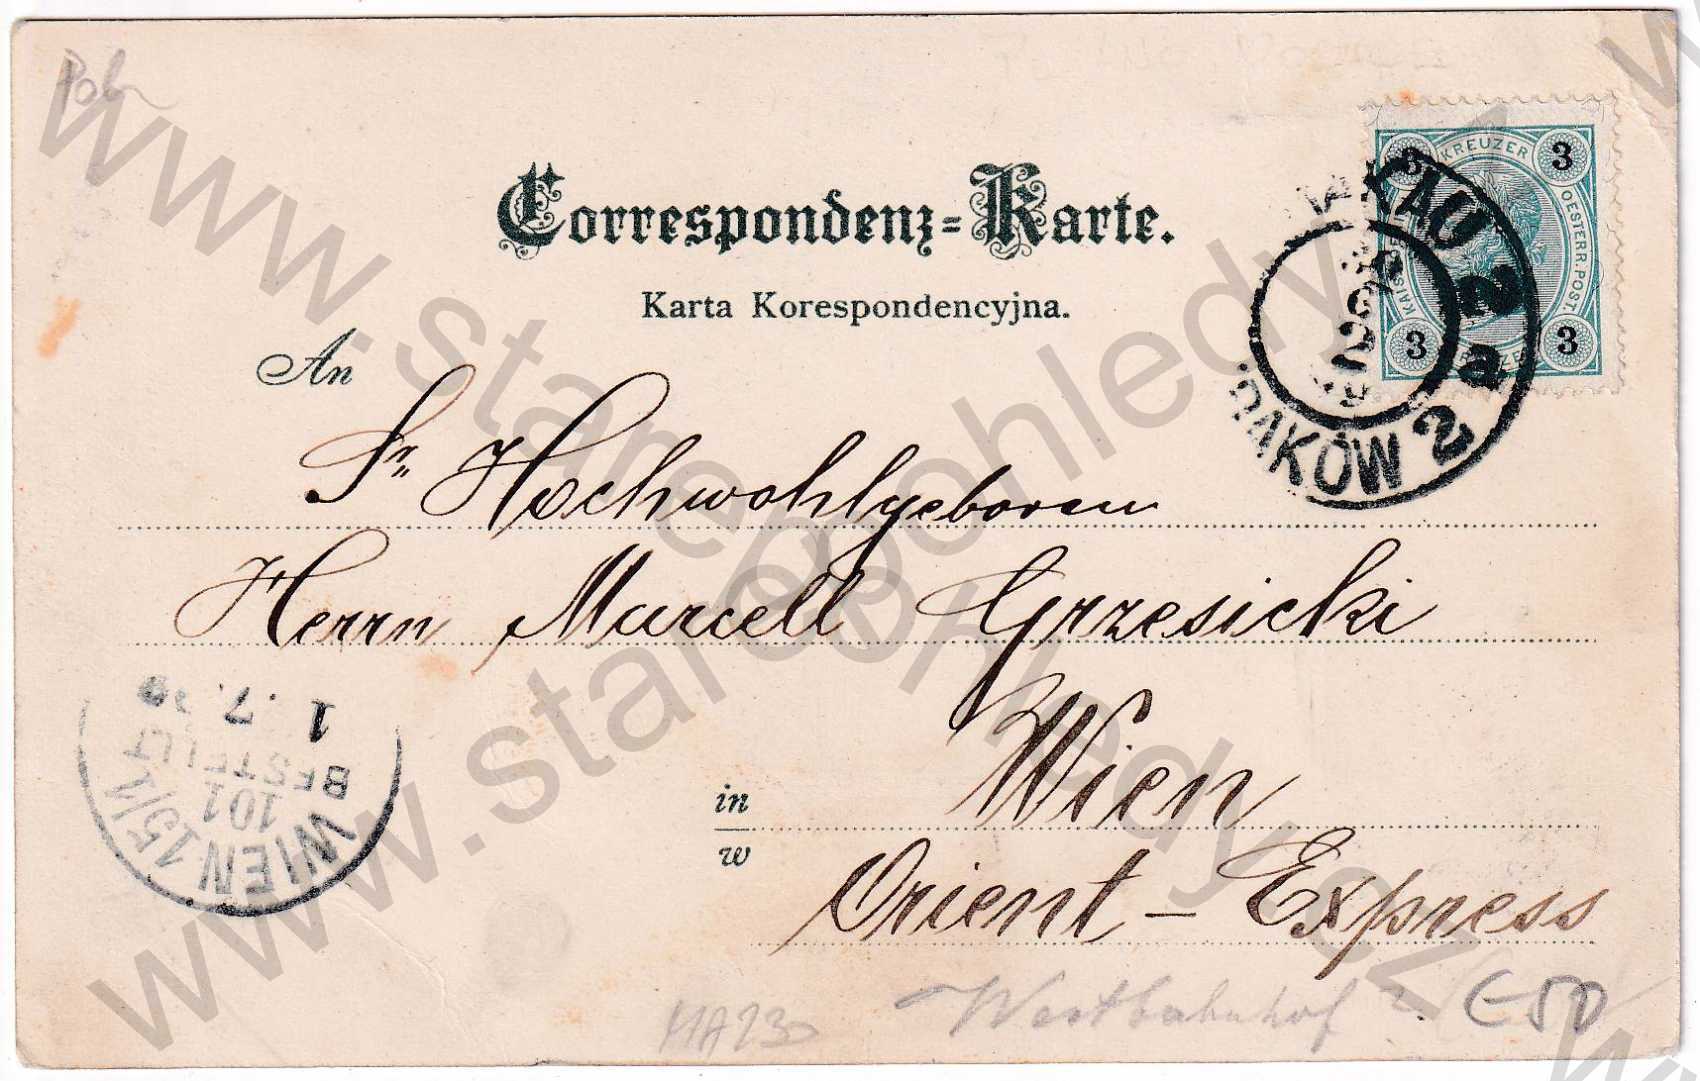 Correspondenz=Karte.
Karta Korespondencyjna.
3 KREUZER 3
OESTERR. POST.
3 3
KRAKAU 2 a
KRAKÓW 2
An
Sr. Hochwohlgeboren
Herrn Marcell Grzesicki
in Wien
w Orient - Express
Westbahnhof
WIEN 15/1
101
BESTELLT
1 .7.
www.starepohledy.cz
www.starepohledy.cz